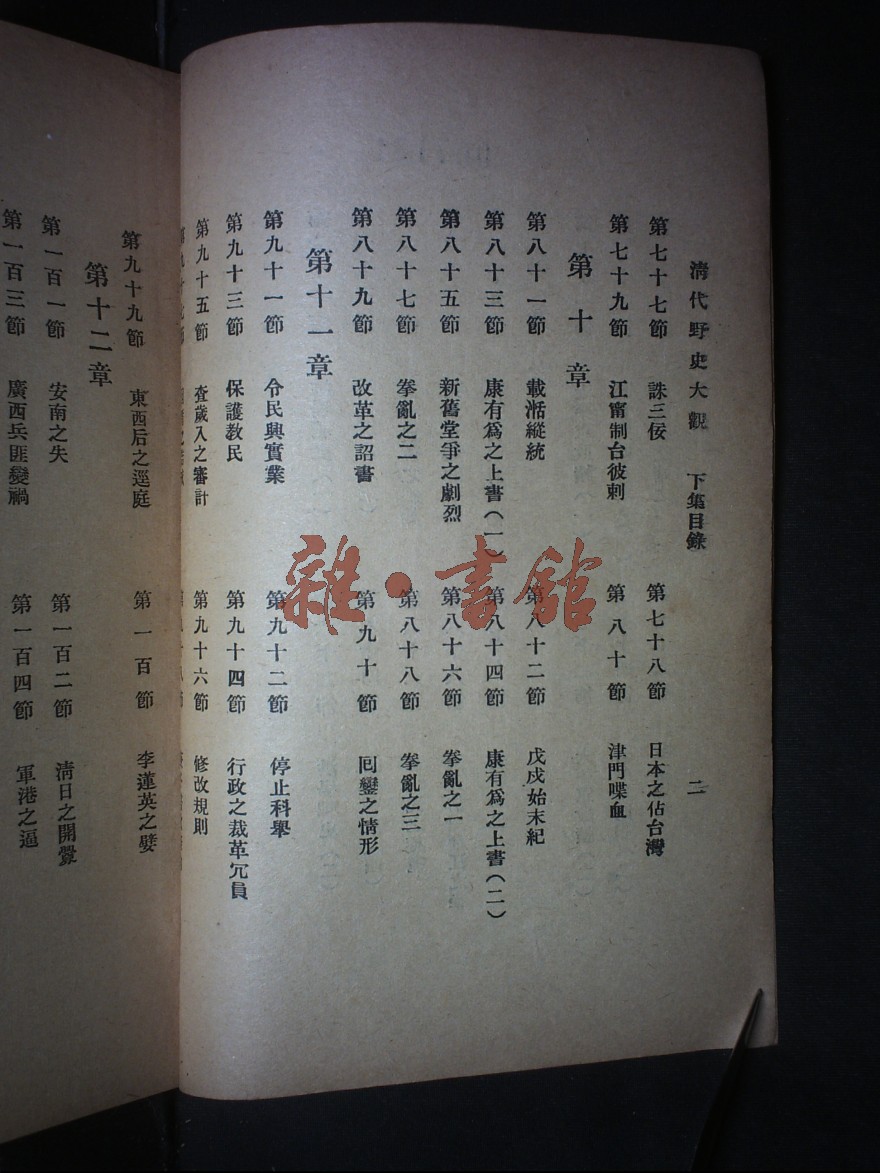 清代野史大觀　下集目錄　二
第七十七節　誅三佞　第七十八節　日本之佔台灣
第七十九節　江甯制台彼刺　第八十節　津門喋血
第十章
第八十一節　載湉縱統　第八十二節　戊戌始末紀
第八十三節　康有爲之上書(一)　第八十四節　康有爲之上書(二)
第八十五節　新舊堂爭之劇烈　第八十六節　拳亂之一
第八十七節　拳亂之二　第八十八節　拳亂之三
第八十九節　改革之詔書　第九十節　囘鑾之情形
第十一章
第九十一節　令民興實業　第九十二節　停止科舉
第九十三節　保護教民　第九十四節　行政之裁革冗員
第九十五節　查歲入之審計　第九十六節　修改規則
第九十九節　東西后之逕庭　第一百節　李蓮英之嬖
第十二章
第一百一節　安南之失　第一百二節　淸日之開釁
第一百三節　廣西兵匪變禍　第一百四節　軍港之逼
雜·書館